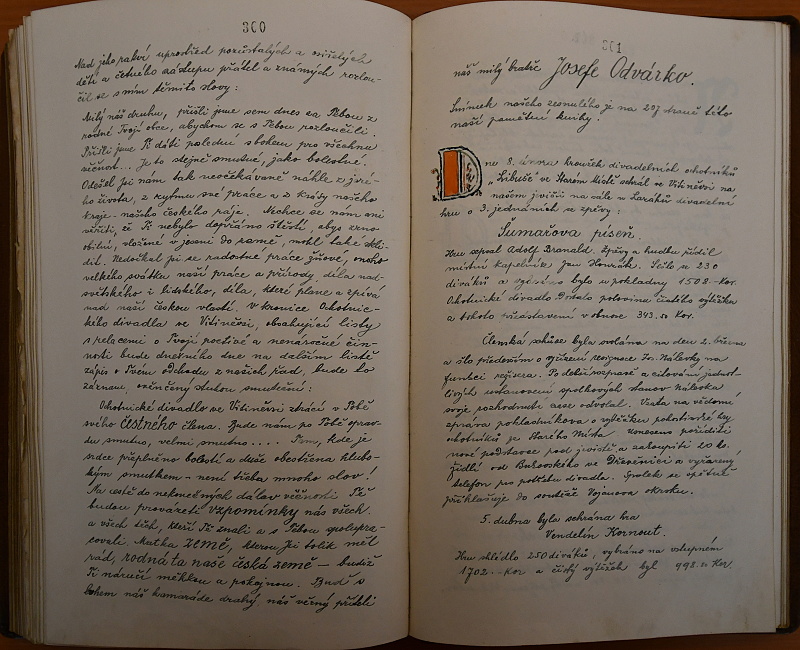 300
Nad jeho rakví uprostřed pozůstalých a osiřelých
dětí a četného zástupu přátel a známých rozlou-
čil se s ním těmito slovy:
Milý náš druhu, přišli jsme sem dnes za Tebou z
rodné Tvojí obce, abychom se s Tebou rozloučili.
Přišli jsme Ti dáti poslední s bohem pro všechnu
věčnost... Je to stejně smutné, jako bolestné.
Odešel jsi nám tak neočekávaně náhle z jiné-
ho života, z rytmu své práce a z krásy našeho
kraje - našeho českého ráje. Nechce se nám ani
věřiti, že Ti nebylo dopřáno štěstí, abys zrno
obilné, vložené v jeseni do země, mohl také skli-
dit. Nedočkal jsi se radostné práce žňové, onoho
velkého svátku naší práce a přírody, díla nad-
světského i lidského, díla, které plane a zpívá
nad naší českou vlastí. V kronice Ochotnic-
kého divadla ve Vitiněvsi, obsahující listy
s relacemi o Tvojí poctivé a nenáročné čin-
nosti bude dnešního dne na dalším listě
zápis o Tvém odchodu z našich řad, bude to
záznam, ověnčený stuhou smuteční:
Ochotnické divadlo ve Vitiněvsi ztrácí v Tobě
svého čestného člena. Bude nám po Tobě oprav-
du smutno, velmi smutno.... Tam, kde je
srdce přeplněno bolestí a duše obestřena hlubo-
kým smutkem - není třeba mnoho slov!
Na cestě do nekonečných dálav věčnosti Tě
budou provázeti vzpomínky nás všech
a všech těch, kteří Tě znali a s Tebou spolupra-
covali. Matka země, kterou Jsi tolik měl
rád, rodná ta naše česká země - budiž
Ti náručí měkkou a pokojnou. Buď s
bohem náš kamaráde drahý, náš věrný příteli
301
náš milý bratře Josefe Odvárko.
Snímek našeho zesnulého je na 207 straně této
naší pamětní knihy.
Dne 8. února kroužek divadelních ochotníků
"Libuše" ve Starém Místě sehrál ve Vitiněvsi na
našem jevišti na sále u Lazáků divadelní
hru o 3. jednáních se zpěvy:
Šumařova píseň.
Hru sepsal Adolf Branald. Zpěvy a hudbu řídil
místní kapelník Jan Honzák. Sešlo se 230
diváků a sebráno bylo v pokladny 1508.-Kor.
Ochotnické divadlo dostalo polovinu čistého výtěžku
a z tohoto představení v obnose 343.50 Kor.
Členská schůze byla svolána na den 2. března
a šlo především o vyřízení resignace Jos. Nálevky na
funkci režiséra. Po delší rozpravě a citování jednot-
livých ustanovení spolkových stanov Nálevka
svoje pohodnutí zase odvolal. Vzata na vědomí
zpráva pokladníkova o výtěžku pohostinské hry
ochotníků ze Starého Místa. Usneseno poříditi
nové podstavce pod jeviště a zakoupiti 20 ks.
židlí od Bukovského ve Dřevěnici a vyřazený
telefon pro potřebu divadla. Spolek se opětně
přihlašuje do soutěže Vojanova okrsku.
5. dubna byla sehrána hra
Vendelín Kornout.
Hru shlédlo 250 diváků, vybráno na vstupném
1702.- Kor a čistý výtěžek byl 998.20 Kor.